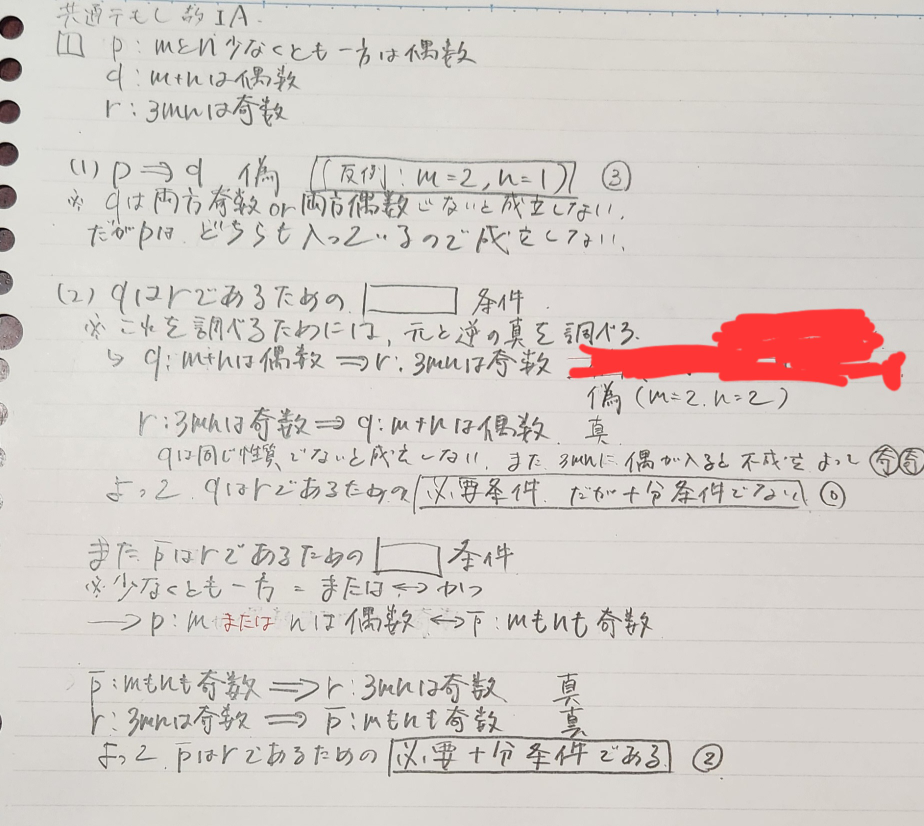 共通テもし数IA.
1 p:mとn少なくとも一方は偶数
q:m+nは偶数
r:3mnは奇数
(1) p⇒q 偽 (反例:m=2,n=1) ③
※ qは両方奇数or両方偶数じゃないと成立しない.
だがpは どちらも入っているので成立しない.
(2) qはrであるための □ 条件.
※これを調べるためには,元と逆の真を調べる.
↳ q:m+nは偶数⇒r:3mnは奇数
偽(m=2.n=2)
r:3mnは奇数⇒q:m+nは偶数. 真
qは同じ性質でないと成立しない.また3mnに偶が入ると不成立よって奇奇
よって qはrであるための必要条件.だが十分条件でない ⓪
また p̄はrであるための □ 条件
※少なくとも一方=または↔かつ
→p:mまたはnは偶数↔p̄:mもnも奇数
p̄:mもnも奇数⇒r:3mnは奇数 真
r:3mnは奇数⇒p̄:mもnも奇数 真
よって p̄はrであるための必要十分条件である. ②